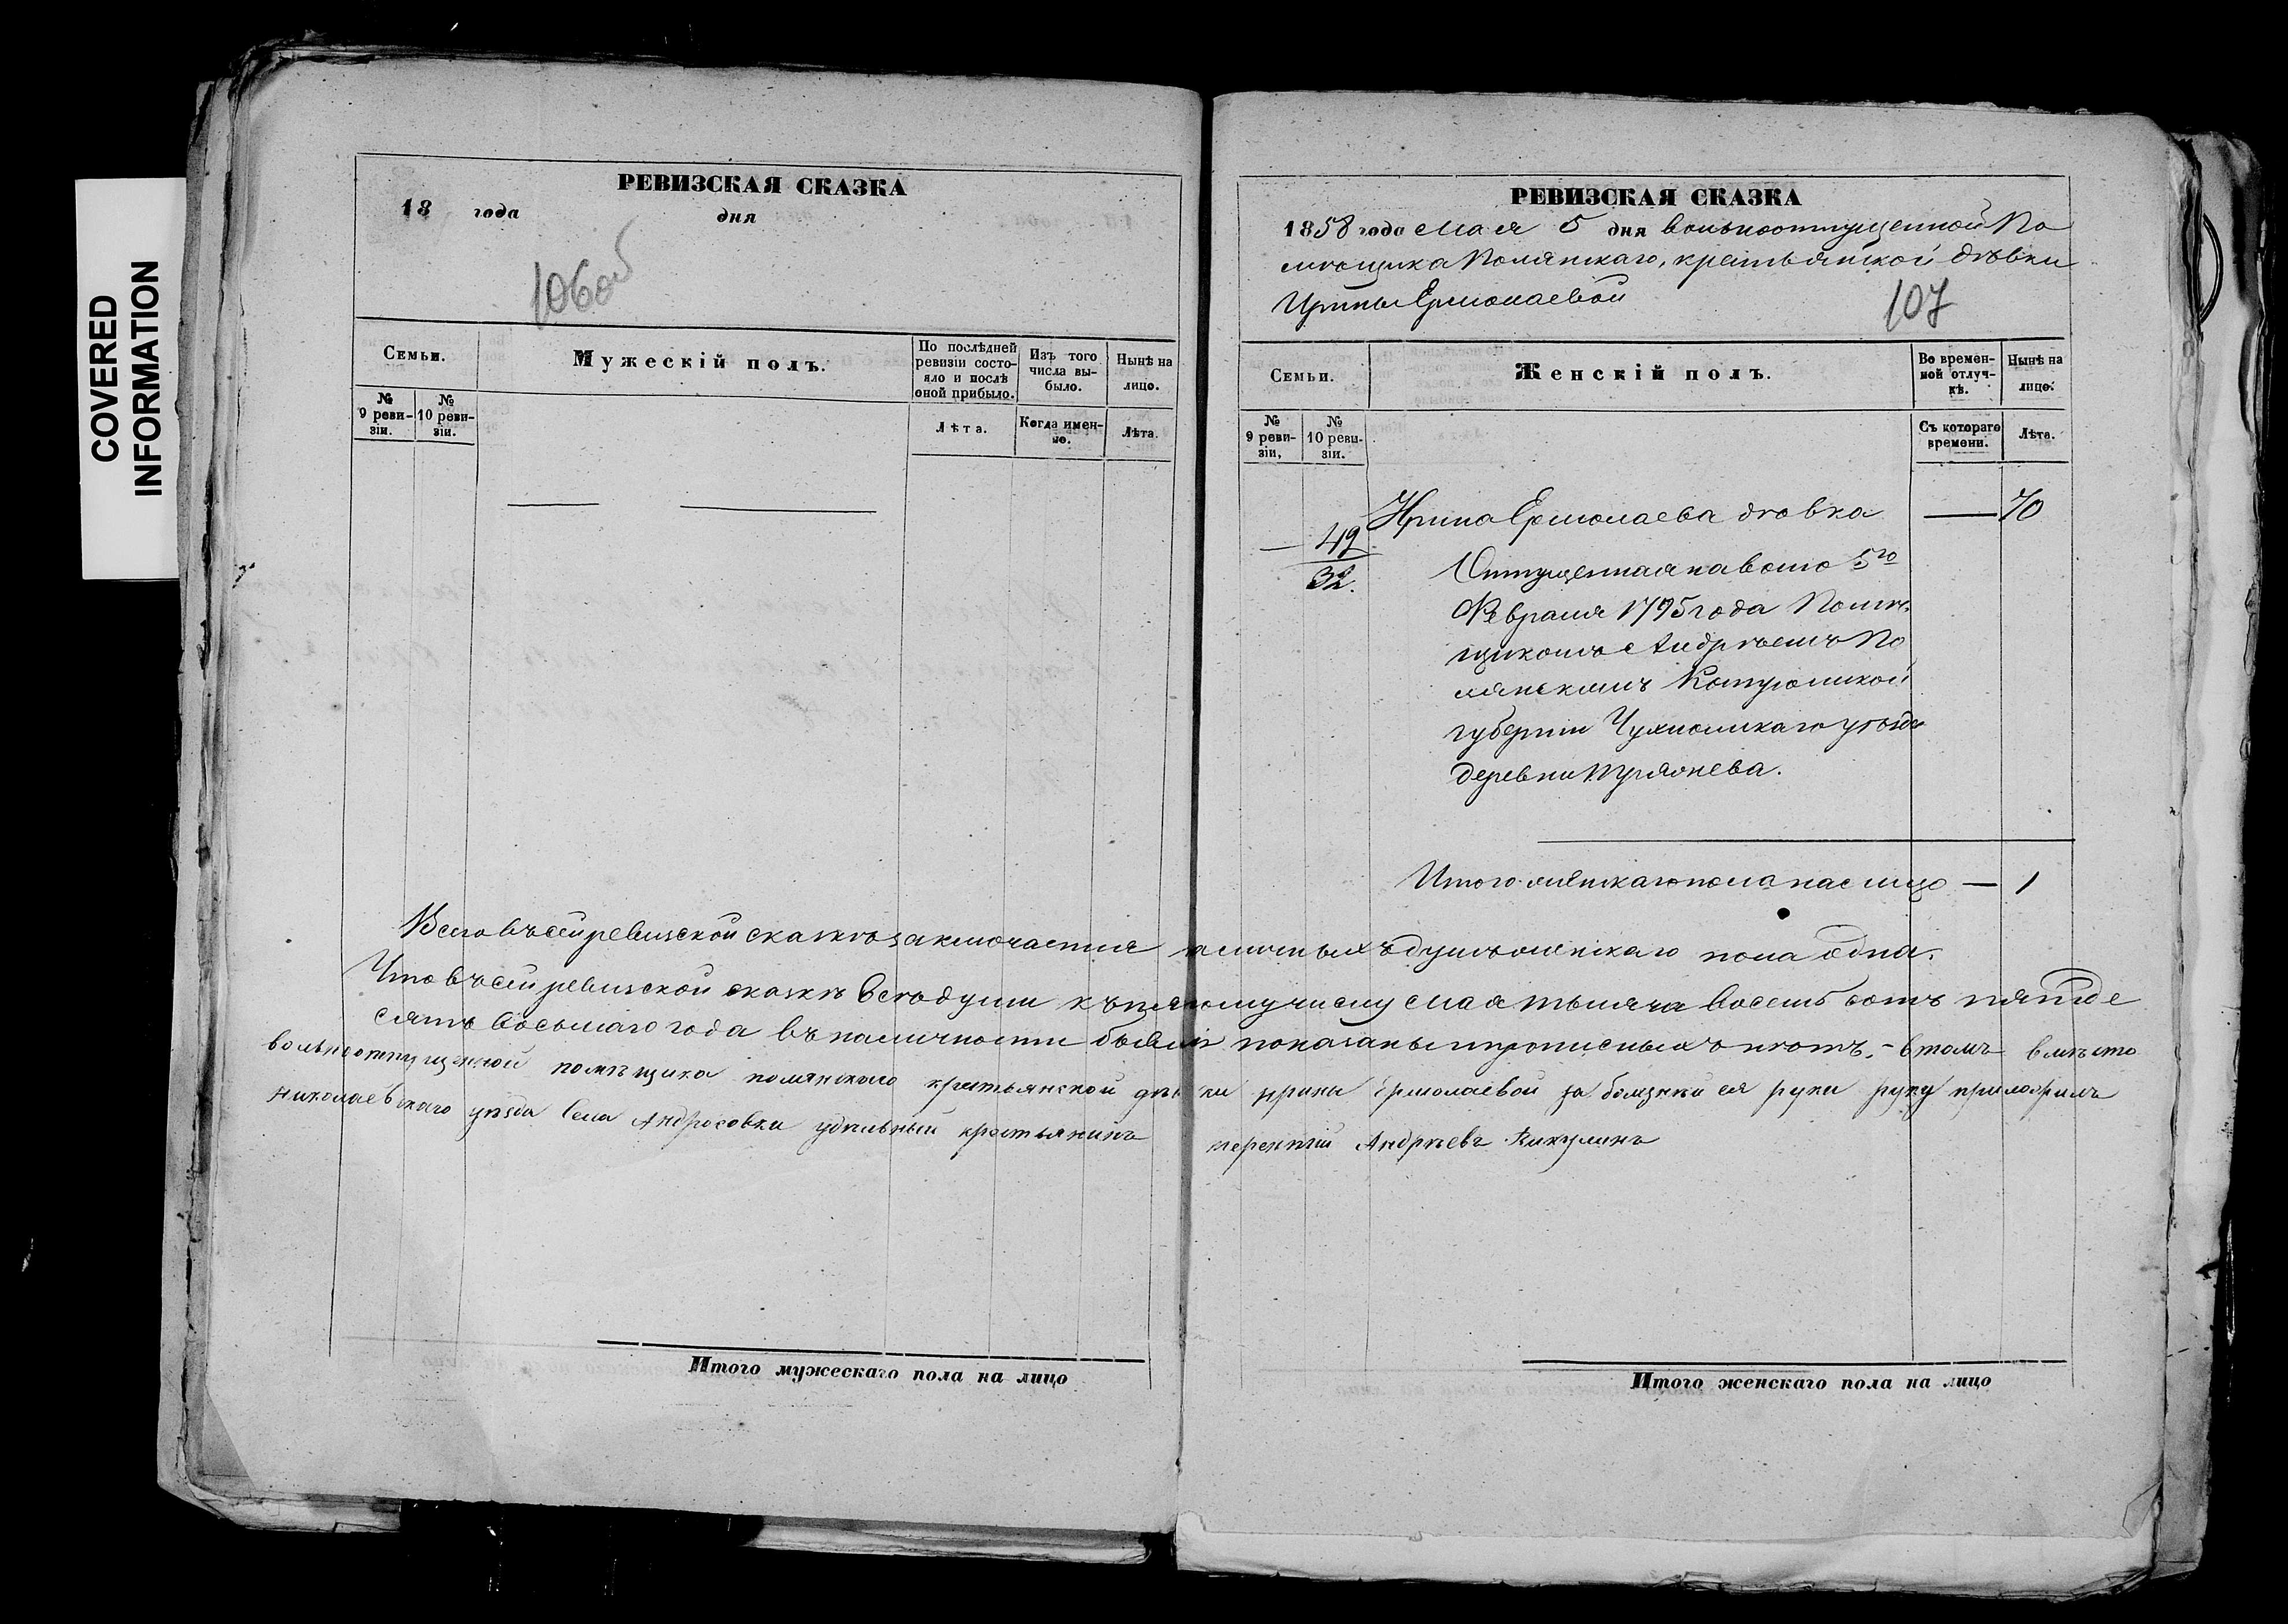 COVERED
INFORMATION
РЕВИЗСКАЯ СКАЗКА
18 года дня
106об
Семьи.
Мужескій полъ.
По послѣдней ревизіи состояло и послѣ оной прибыло.
Изъ того числа выбыло.
Нынѣ на лицо.
№ 9 ревизіи.
№ 10 ревизіи.
Лѣта.
Когда именно.
Лѣта.
Итого мужескаго пола на лицо
РЕВИЗСКАЯ СКАЗКА
1858 года Мая 5 дня вольноотпущенной По
мѣщика Полянскаго, крестьянской дѣвки
Ирины Ермолаевой
107
Семьи.
Женскій полъ.
Во временной отлучкѣ.
Нынѣ на лицо.
№ 9 ревизіи,
№ 10 ревизіи.
Съ котораго времени.
Лѣта.
Ирина Ермолаева дѣвка — 70
— 42
32.
Отпущенная на волю 5го
Февраля 1795 года Помѣ
щикомъ Андрѣемъ По
лянскимъ Костромской
губерніи Чухломскаго уѣзда
деревни
Итого женскаго пола на лицо — 1
Всего въ сей ревизской сказкѣ заключается наличныхъ душъ женскаго пола одна.
Что въ сей ревизской сказкѣ всѣ души къ пятому числу Мая тысяча восемь сотъ пятьде
сятъ восьмаго года въ наличности бывшія показаны и прописныхъ нѣтъ. – втомъ вмѣсто
вольноотпущеной помѣщика полянскаго крестьянской дѣвки ирины Ермолаевой за ея руки руку приложилъ
николаевскаго уѣзда села Андросовки удѣльный крестьянинъ терентій Андрѣевъ Викулинъ
Итого женскаго пола на лицо